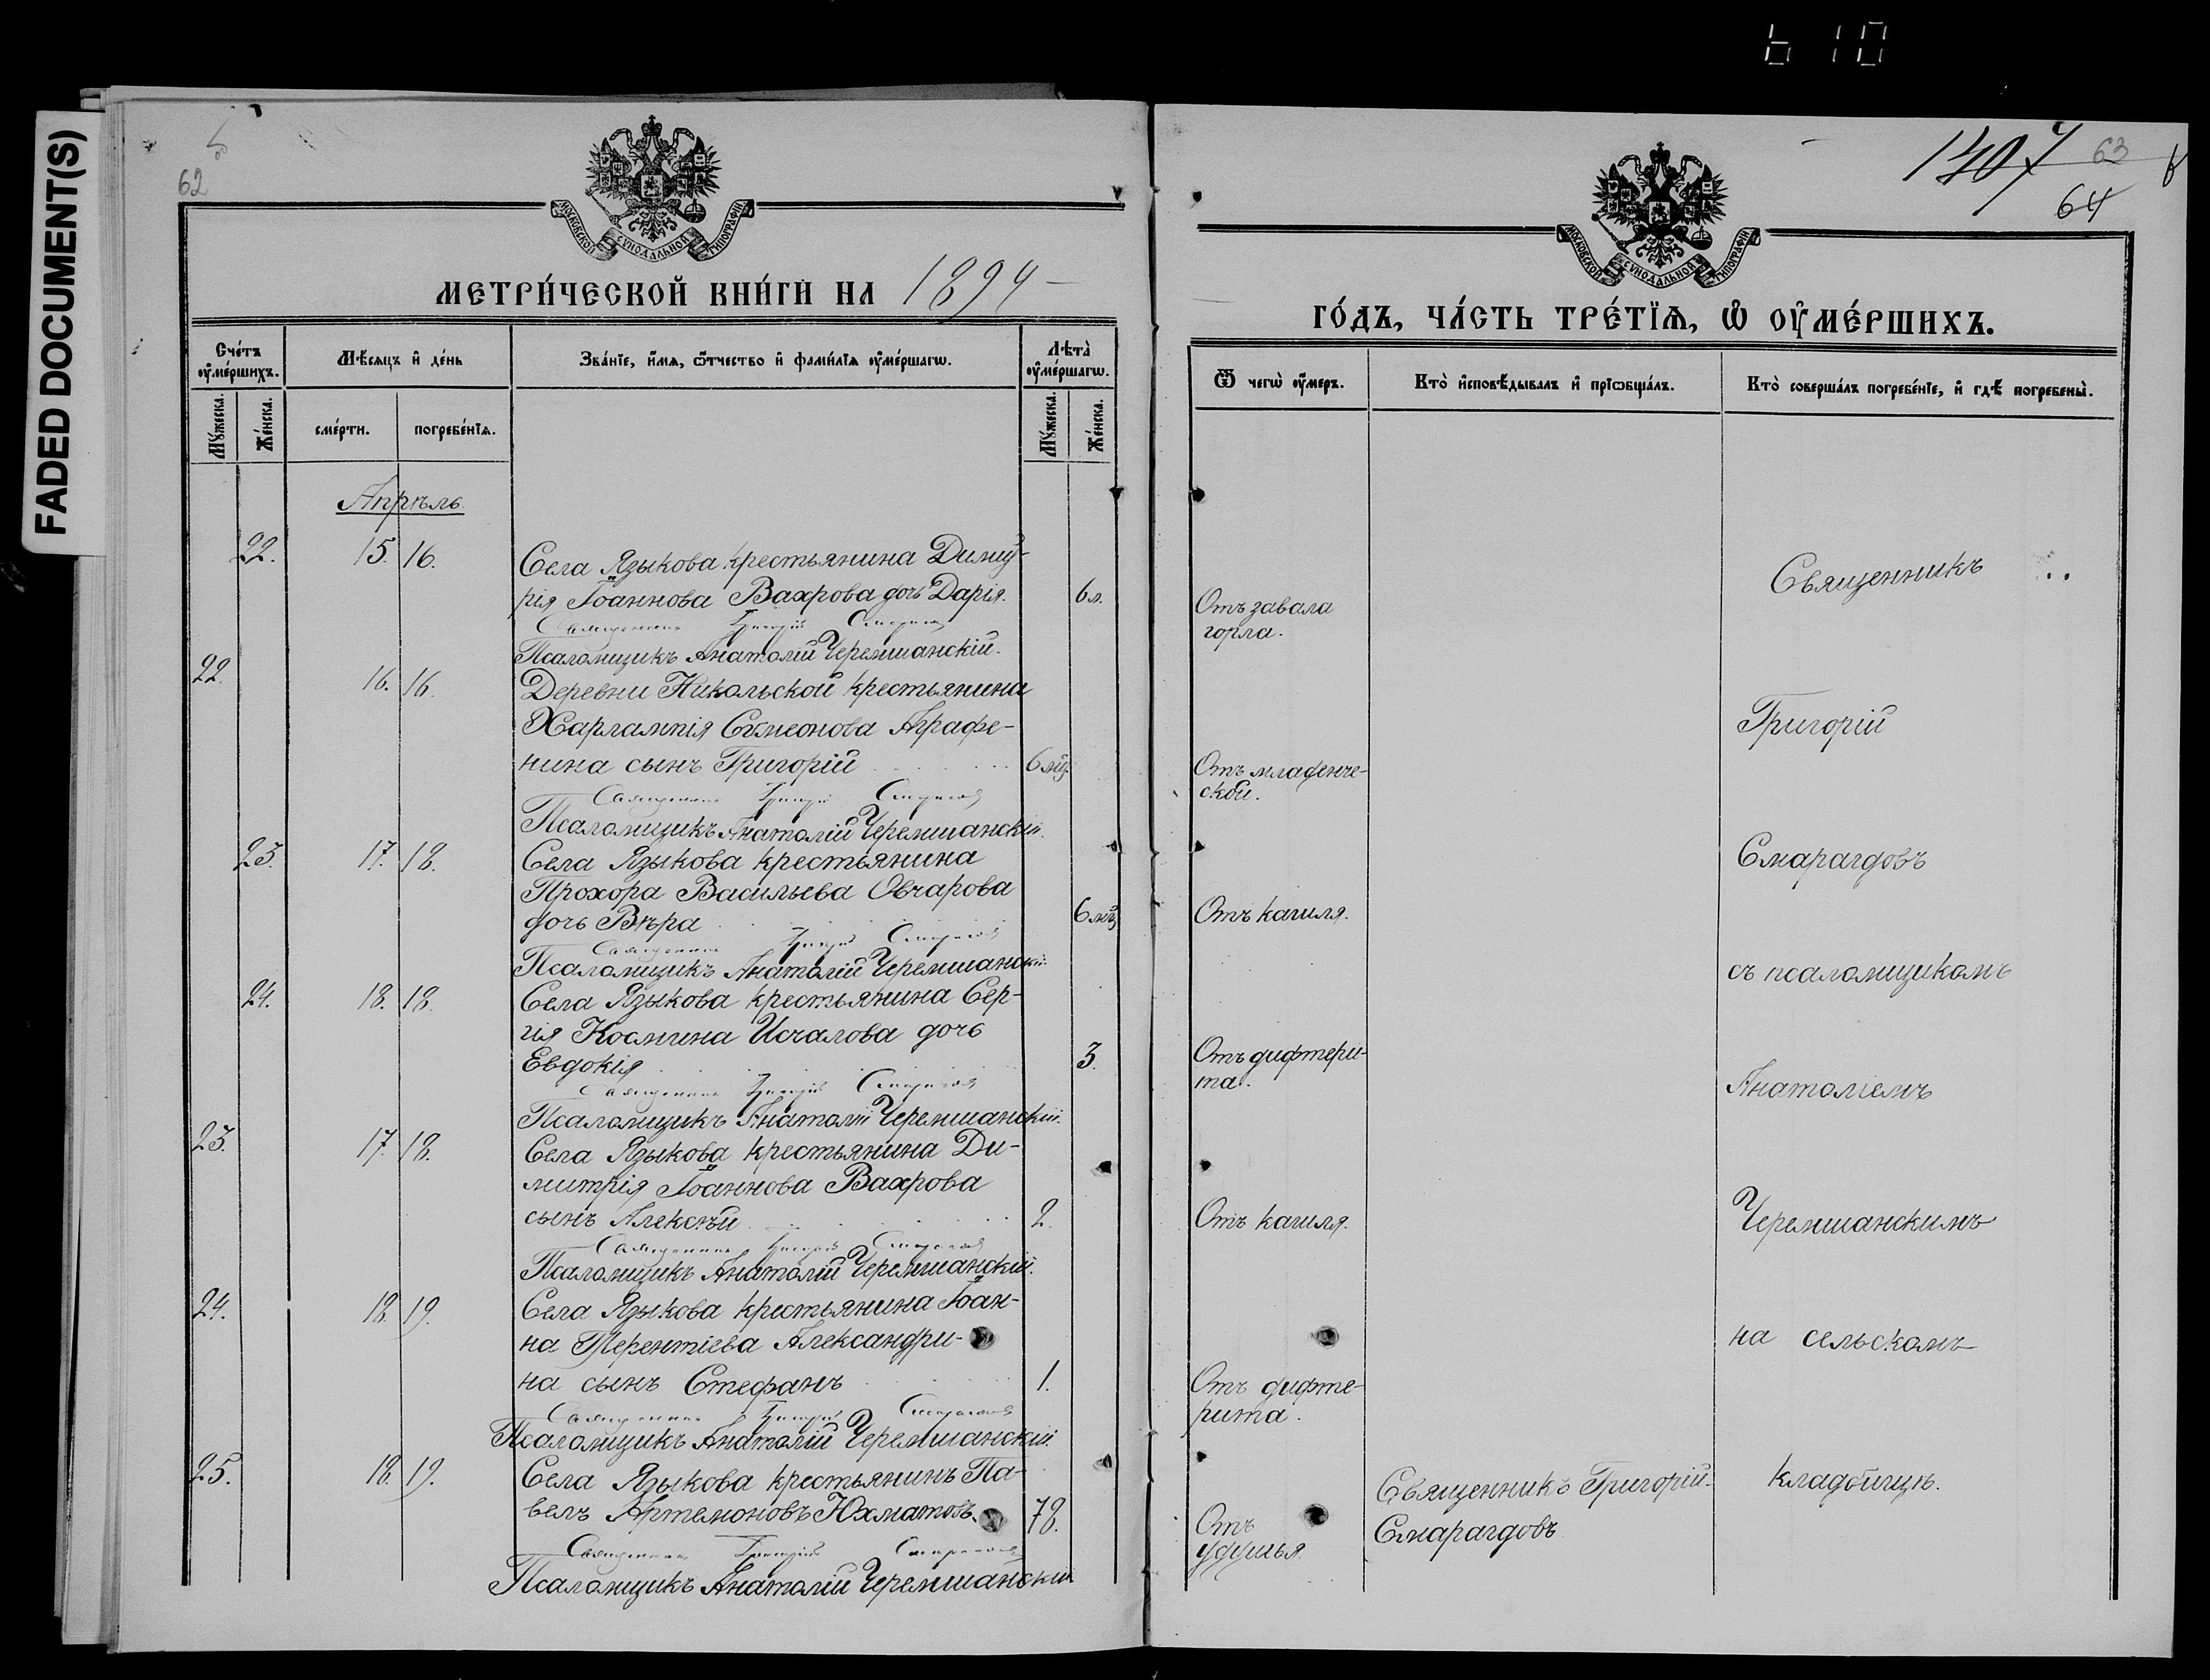 610
FADED DOCUMENT(S)
62
МОСКОВСКОЙ СѴНОДАЛЬНОЙ ТИПОГРАФІИ
МЕТРИ́ЧЕСКОЙ КНИ́ГИ НА 1894
Сче́тъ ᲂу҆ме́ршихъ.
Мѣ́сяцъ и҆ де́нь
Зва́нїе, и҆́мѧ, ѻ҆́тчество и҆ фами́лїѧ ᲂу҆ме́ршагѡ.
Лѣта̀ ᲂу҆ме́ршагѡ.
Мꙋ́жеска.
Же́нска.
сме́рти.
погребе́нїѧ.
Мꙋ́жеска.
Же́нска.
Апрѣль
22. 15. 16. Села Языкова крестьянина Димит-
рія Іоаннова Вахрова дочь Дарія. 6 л.
Священникъ Григорій Смарагдовъ
Псаломщикъ Анатолій Черемшанскій.
22. 16. 16. Деревни Никольской крестьянина
Харлампія Сѵмеонова Аграфе-
нина сынъ Григорій 6 мц.
Священникъ Григорій Смарагдовъ
Псаломщикъ Анатолій Черемшанскій.
23. 17. 18. Села Языкова крестьянина
Прохора Васильева Овчарова
дочь Вѣра 6 мц
Священникъ Григорій Смарагдовъ
Псаломщикъ Анатолій Черемшанскій.
24. 18. 18. Села Языкова крестьянина Сер-
гія Космина Исчалова дочь
Евдокія 3.
Священникъ Григорій Смарагдовъ
Псаломщикъ Анатолій Черемшанскій.
23. 17. 18. Села Языкова крестьянина Ди-
митрія Іоаннова Вахрова
сынъ Алексѣй 2.
Священникъ Григорій Смарагдовъ
Псаломщикъ Анатолій Черемшанскій.
24. 18. 19. Села Языкова крестьянина Іоан-
на Терентіева Александри-
на сынъ Стефанъ 1.
Священникъ Григорій Смарагдовъ
Псаломщикъ Анатолій Черемшанскій.
25. 18. 19. Села Языкова крестьянинъ Па-
велъ Артемоновъ Юхматовъ. 78.
Священникъ Григорій Смарагдовъ
Псаломщикъ Анатолій Черемшанскій
1407
63
64
МОСКОВСКОЙ СѴНОДАЛЬНОЙ ТИПОГРАФІИ
ГО́ДЪ, ЧА́СТЬ ТРЕ́ТЇѦ, Ѡ҆ ОУ҆МЕ́РШИХЪ.
Ѿ чегѡ̀ ᲂу҆́меръ.
Кто̀ и҆сповѣ́дывалъ и҆ прїѡбща́лъ.
Кто̀ соверша́лъ погребе́нїе, и҆ гдѣ̀ погребены̀.
Отъ завала
горла.
Отъ младенче-
ской.
Отъ кашля.
Отъ дифтери-
та.
Отъ кашля.
Отъ дифте-
рита.
Отъ
удушья.
Священникъ Григорій
Смарагдовъ
Священникъ
Григорій
Смарагдовъ
съ псаломщикомъ
Анатоліемъ
Черемшанскимъ
на сельскомъ
кладбищѣ.